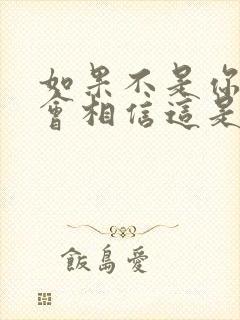 如果不是你
會相信這是
飯島愛